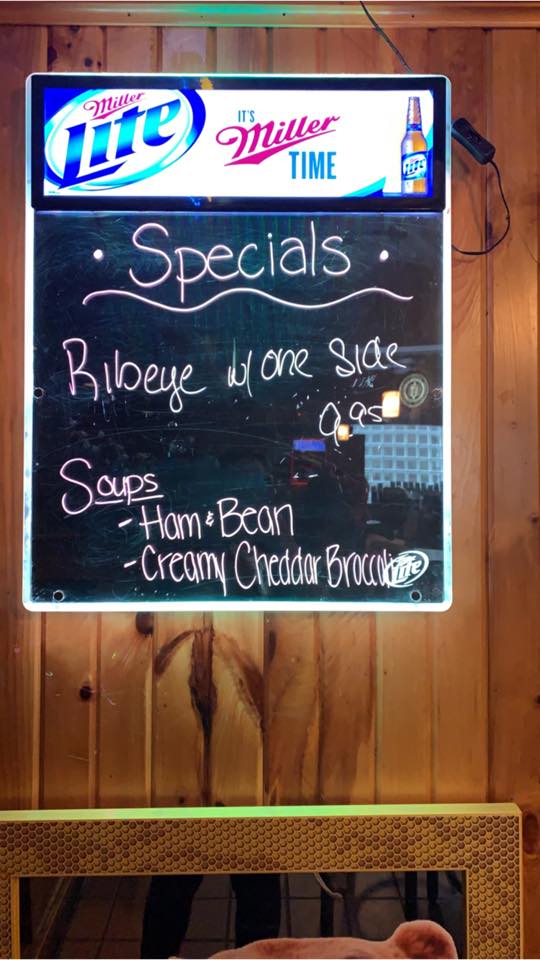 Miller
Lite
IT'S
Miller
TIME
Lite
• Specials •
Ribeye w/ one Side
9.95
Soups
- Ham & Bean
- Creamy Cheddar Broccoli
Lite